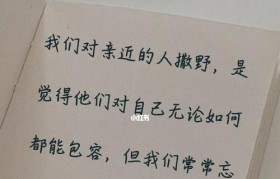 我们对亲近的人撒野，是
小红书
觉得他们对自己无论如何
都能包容，但我们常常忘